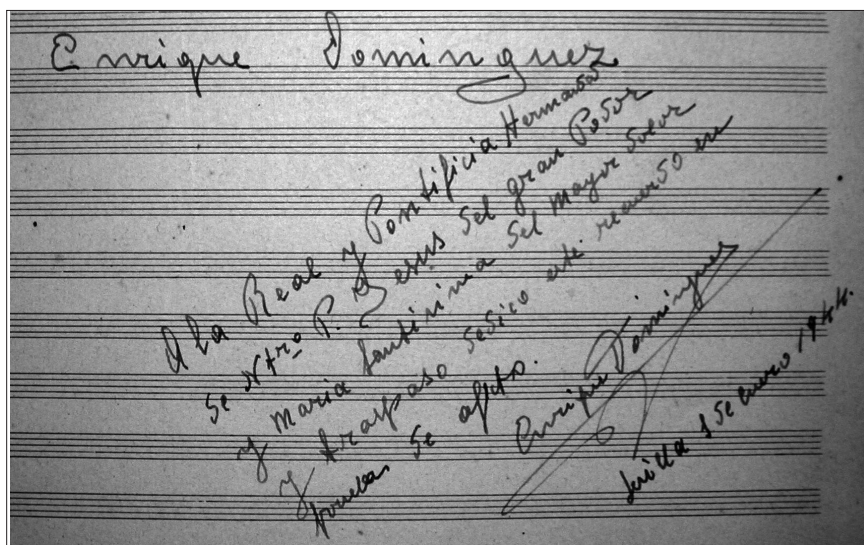 Enrique Dominguez
A la Real y Pontificia Hermandad
de Ntro P. Jesus del gran Poder
y Maria Santisima del Mayor Dolor
y traspaso dedico este recuerdo en
pruebas de afecto.
Enrique Dominguez
Sevilla 1 de enero 1944.